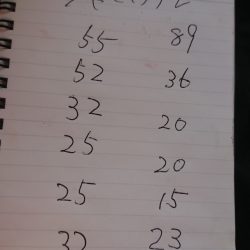 55 89
52 36
32 20
25 20
25 15
32 23